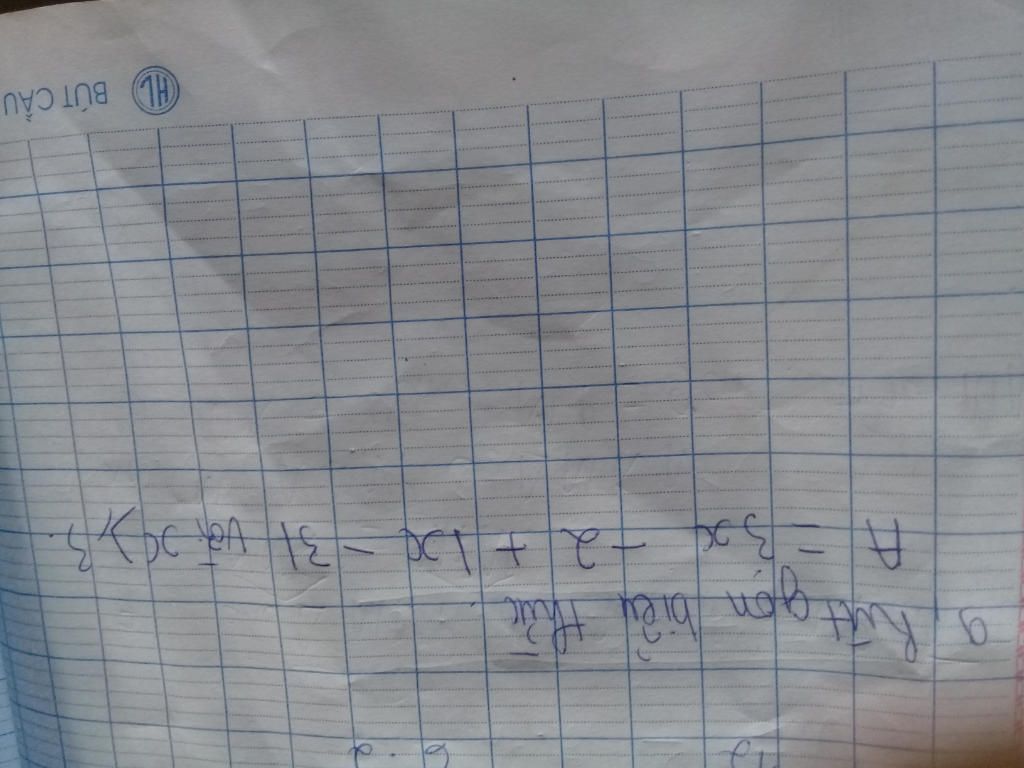 a, Rút gọn biểu thức
A = 3x - 2 + |x - 3| với x ≥ 3.
HL BÚT CẦU